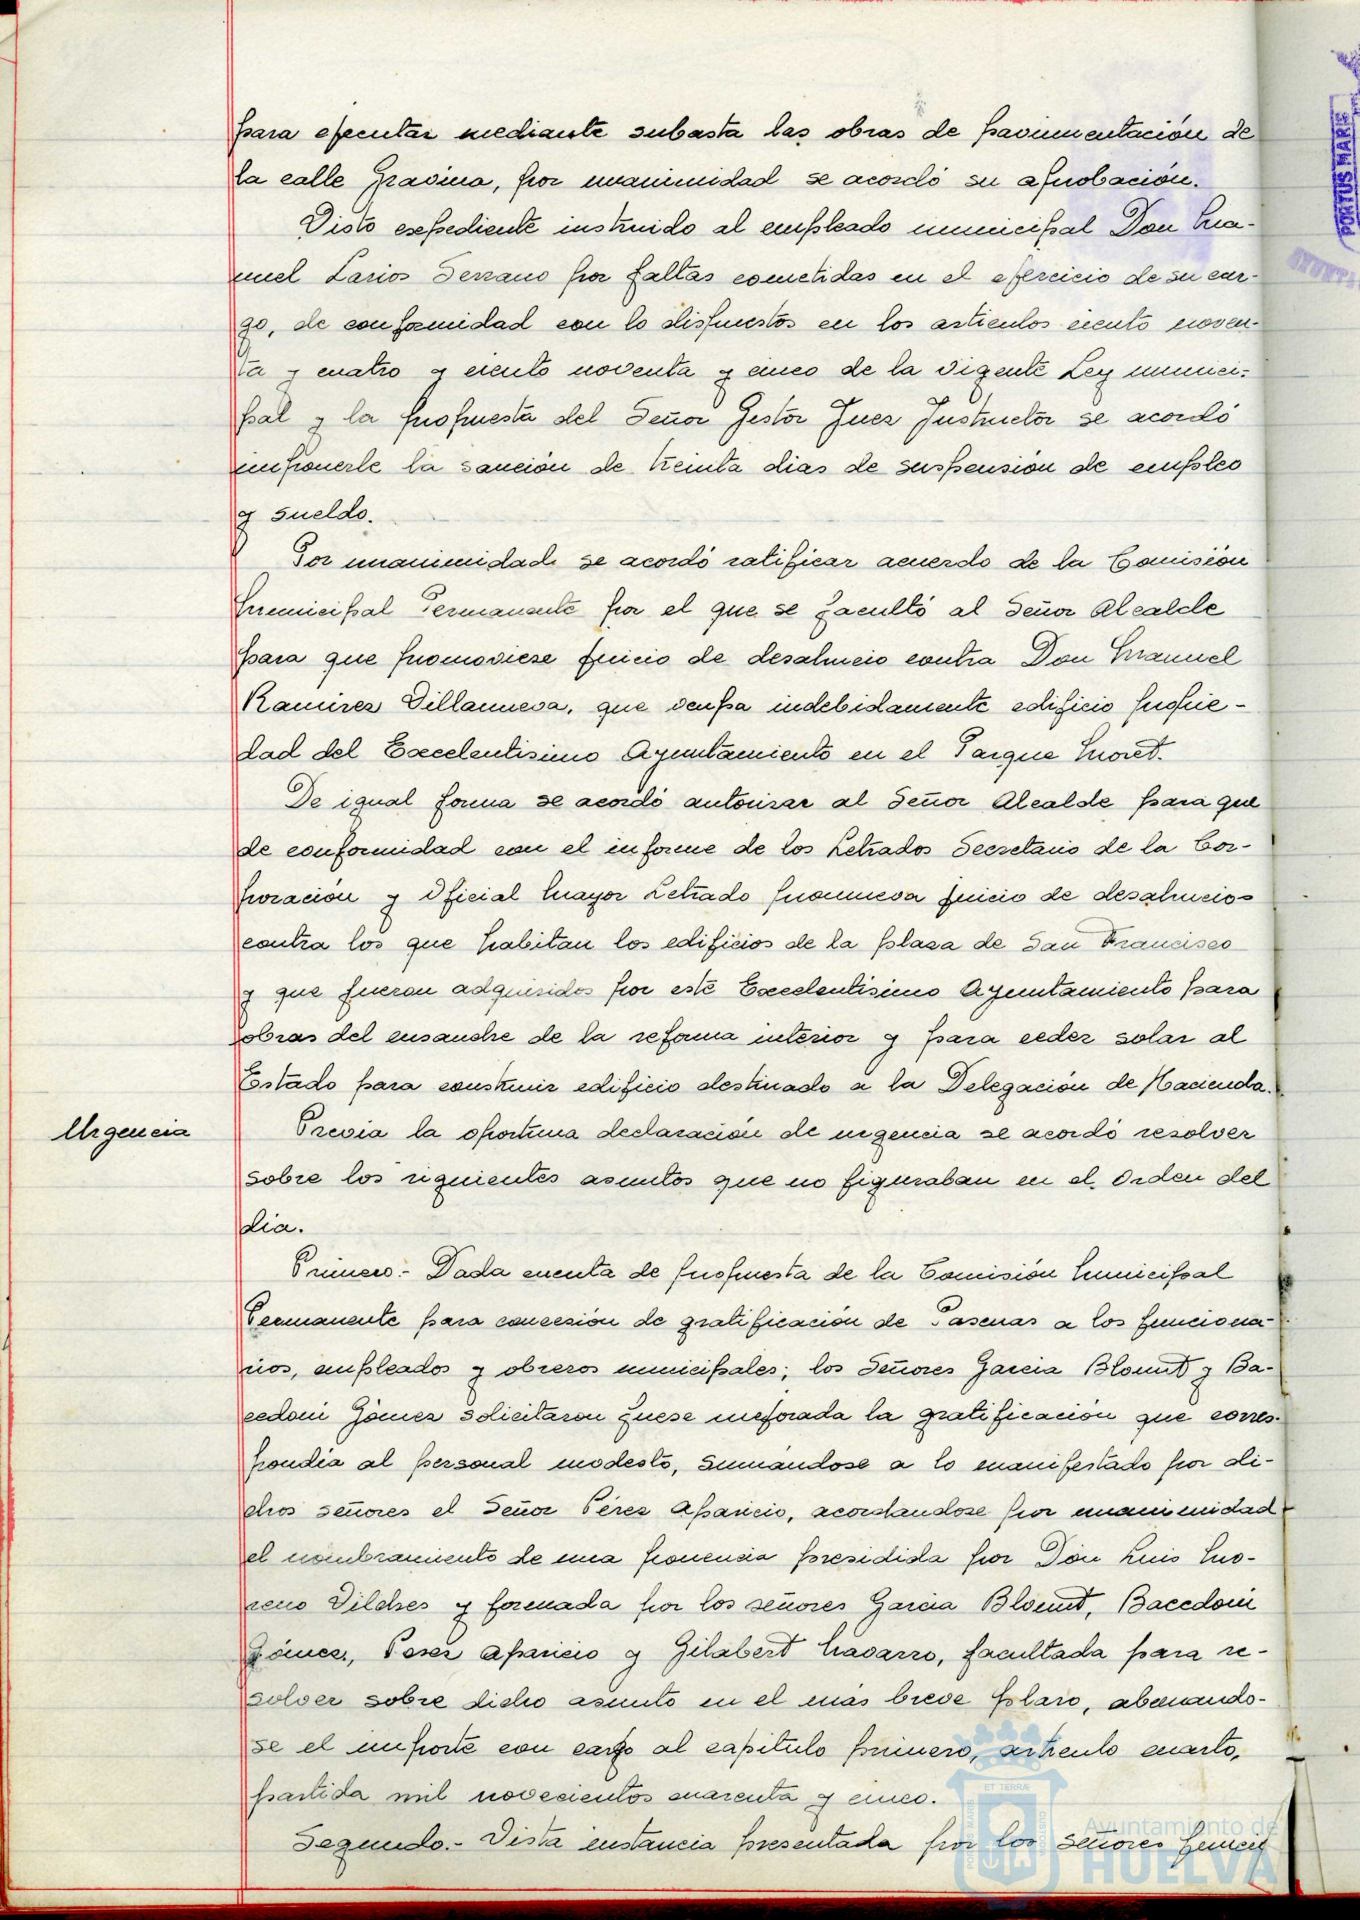 para ejecutar mediante subasta las obras de pavimentación de
la calle Gravina, por unanimidad se acordó su aprobación.
Visto expediente instruido al empleado municipal Don Ma-
nuel Larios Serrano por faltas cometidas en el ejercicio de su car-
go, de conformidad con lo dispuestos en los articulos ciento noven-
ta y cuatro y ciento noventa y cinco de la vigente Ley munici-
pal y la propuesta del Señor Gestor Juez Instructor se acordó
imponerle la sanción de treinta dias de suspensión de empleo
y sueldo.
Por unanimidad se acordó ratificar acuerdo de la Comisión
Municipal Permanente por el que se facultó al Señor Alcalde
para que promoviese juicio de desahucio contra Don Manuel
Ramirez Villanueva, que ocupa indebidamente edificio propie-
dad del Excelentisimo Ayuntamiento en el Parque Moret.
De igual forma se acordó autorizar al Señor Alcalde para que
de conformidad con el informe de los Letrados Secretario de la Cor-
poración y Oficial Mayor Letrado promueva juicio de desahucios
contra los que habitan los edificios de la plaza de San Francisco
y que fueron adquiridos por este Excelentisimo Ayuntamiento para
obras del ensanche de la reforma interior y para ceder solar al
Estado para construir edificio destinado a la Delegación de Hacienda.
Urgencia
Previa la oportuna declaración de urgencia se acordó resolver
sobre los siguientes asuntos que no figuraban en el Orden del
dia.
Primero.- Dada cuenta de propuesta de la Comisión Municipal
Permanente para concesión de gratificación de Pascuas a los funciona-
rios, empleados y obreros municipales; los Señores Garcia Blount y Ba-
cedoni Gómez solicitaron fuese mejorada la gratificación que corres-
pondía al personal modesto, sumándose a lo manifestado por di-
chos señores el Señor Pérez Aparicio, acordandose por unanimidad
el nombramiento de una ponencia presidida por Don Luis Mo-
reno Vilches y formada por los señores Garcia Blount, Bacedoni
Gómez, Perez Aparicio y Gilabert Navarro, facultada para re-
solver sobre dicho asunto en el más breve plazo, abonando-
se el importe con cargo al capitulo primero, articulo cuarto,
partida mil novecientos cuarenta y cinco.
Segundo.- Vista instancia presentada por los señores
PORTUS MARIS
Ayuntamiento de
HUELVA